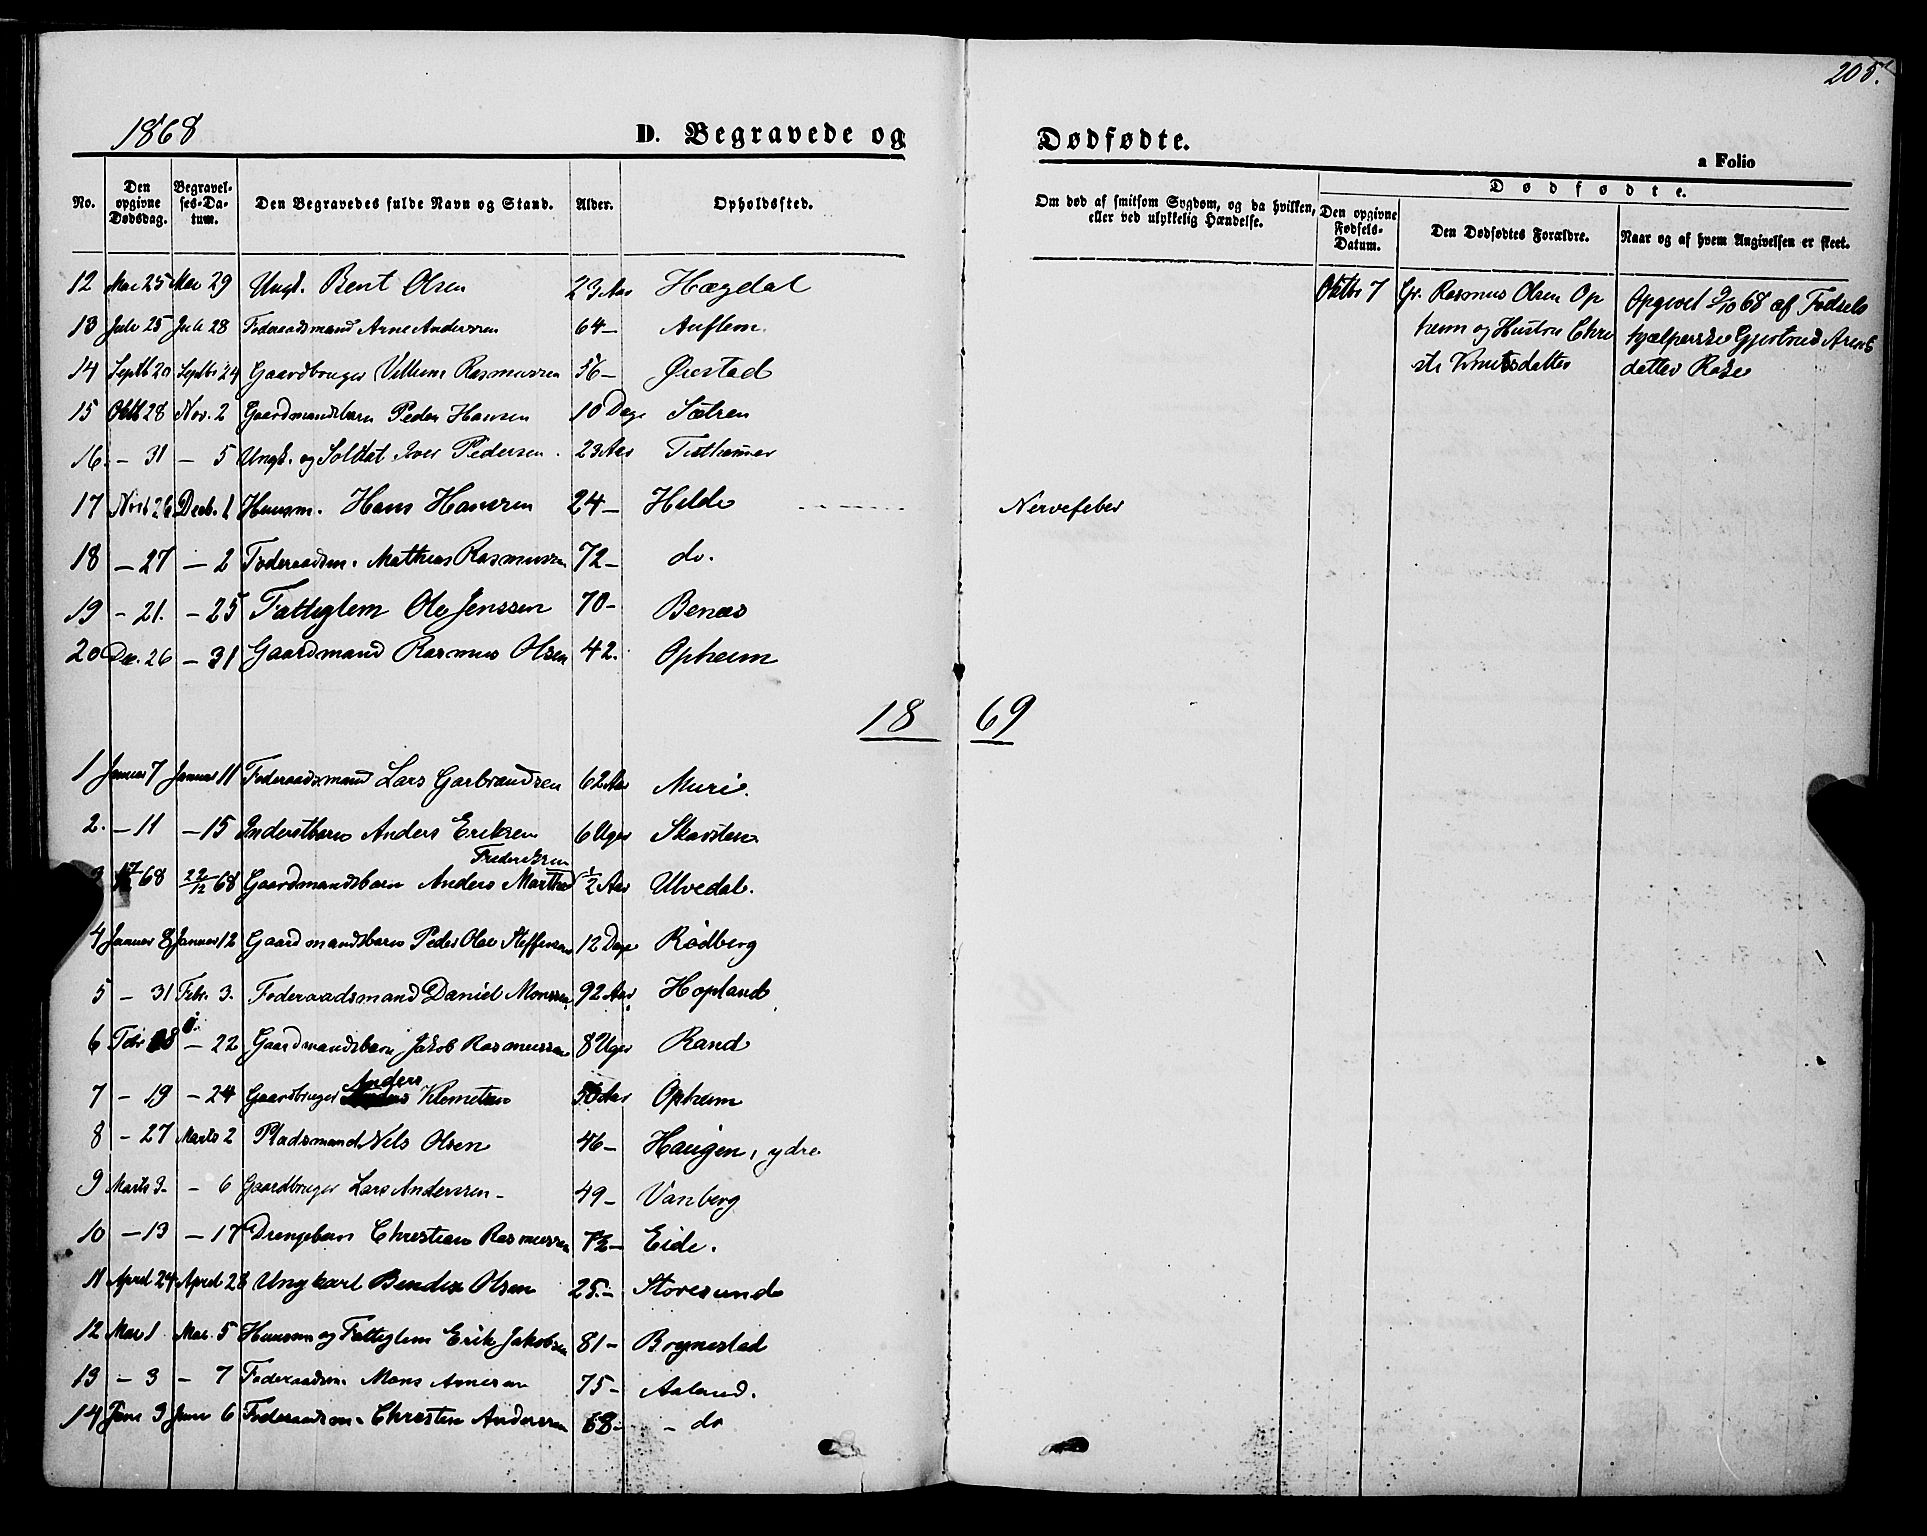 205.
1868
D. Begravede og Dødfødte.
a Folio
No.
Den opgivne Dødsdag.
Begravel- ses-Da- tum.
Den Begravedes fulde Navn og Stand.
Alder.
Opholdssted.
Om død af smitsom Sygdom, og da hvilken, eller ved ulykkelig Hændelse.
Dødfødte.
Den opgivne Fødsels- Datum.
Den Dødfødtes Forældre.
Naar og af hvem Angivelsen er skeet.
12 Mai 25 Mai 29 Ungk. Bent Olsen 23 Aar Hægdal
Oktbr 7 Gr. Rasmus Olsen Op Opgivet 9/10 68 af Fødsels
13 Juli 25 Juli 28 Føderaadsmand Arne Anderssen 64 - Auflem.
heim og Hustru Chri hjælperske Gjertrud Arents
14 Septb 20 Septbr 24 Gaardbruger Villem Rasmussen 56 - Ørestad
sti Knutsdatter datter Rake
15 Oktb 28 Nov. 2 Gaardmandsbarn Peder Hansen 10 Dage Sætren
16. - 31 - 5 Ungk. og Soldat Iver Pedersen. 23 Aar Tisthammer
17 Novb 26 Decb. 1 Huusm. Hans Hanssen 24 - Hilde Nervefeber
18 - 27 - 2 Føderaadsm. Mathias Rasmussen 72 - do.
19 - 21. - 25 Fattiglem Ole Jenssen 70 - Benæs
20 Dec. 26 - 31 Gaardmand Rasmus Olsen 42. Opheim
18 69
1 Januar 7 Januar 11 Føderaadsmand Lars Garbrandsen 62 Aar Muri.
2. - 11 - 15 Inderstbarn Anders Eriksen 6 Uger Skarsten
Frederiksen
3 68 22/12 68 Gaardmandsbarn Anders Marthin 1/2 Aar Ulvedal.
4 Januar 8 Januar 12 Gaardmandsbarn Peder Olai Steffensen 12 Dage Rødberg
5 - 31 Febr. 3. Føderaadsmand Daniel Monssen 92 Aar Hopland
6 Febr 8 - 22 Gaardmandsbarn Jakob Rasmussen 8 Uger Rand
Anders
7 - 19 - 24 Gaardbruger Klemetsen Aar Opheim
8 - 27 Marts 2 Pladsmand Nils Olsen 46 - Haugen, ydre
9 Marts 3 - 6 Gaardbruger Lars Anderssen - 49 - Vanberg
10 - 13 - 17 Drengebarn Christian Rasmussen 7½ - Eide.
11 April 24 April 28 Ungkarl Bendix Olsen 25. - Storesund
12 Mai 1 Mai. 5 Huusm og Fattiglem Erik Jakobsen 81 - Brynestad
13 - 3 - 7 Føderaadsm. Mons Arnesen 75 - Aaland.
14 Juni 3 Juni 6 Føderaadsm. Christen Anderssen 68 - - do